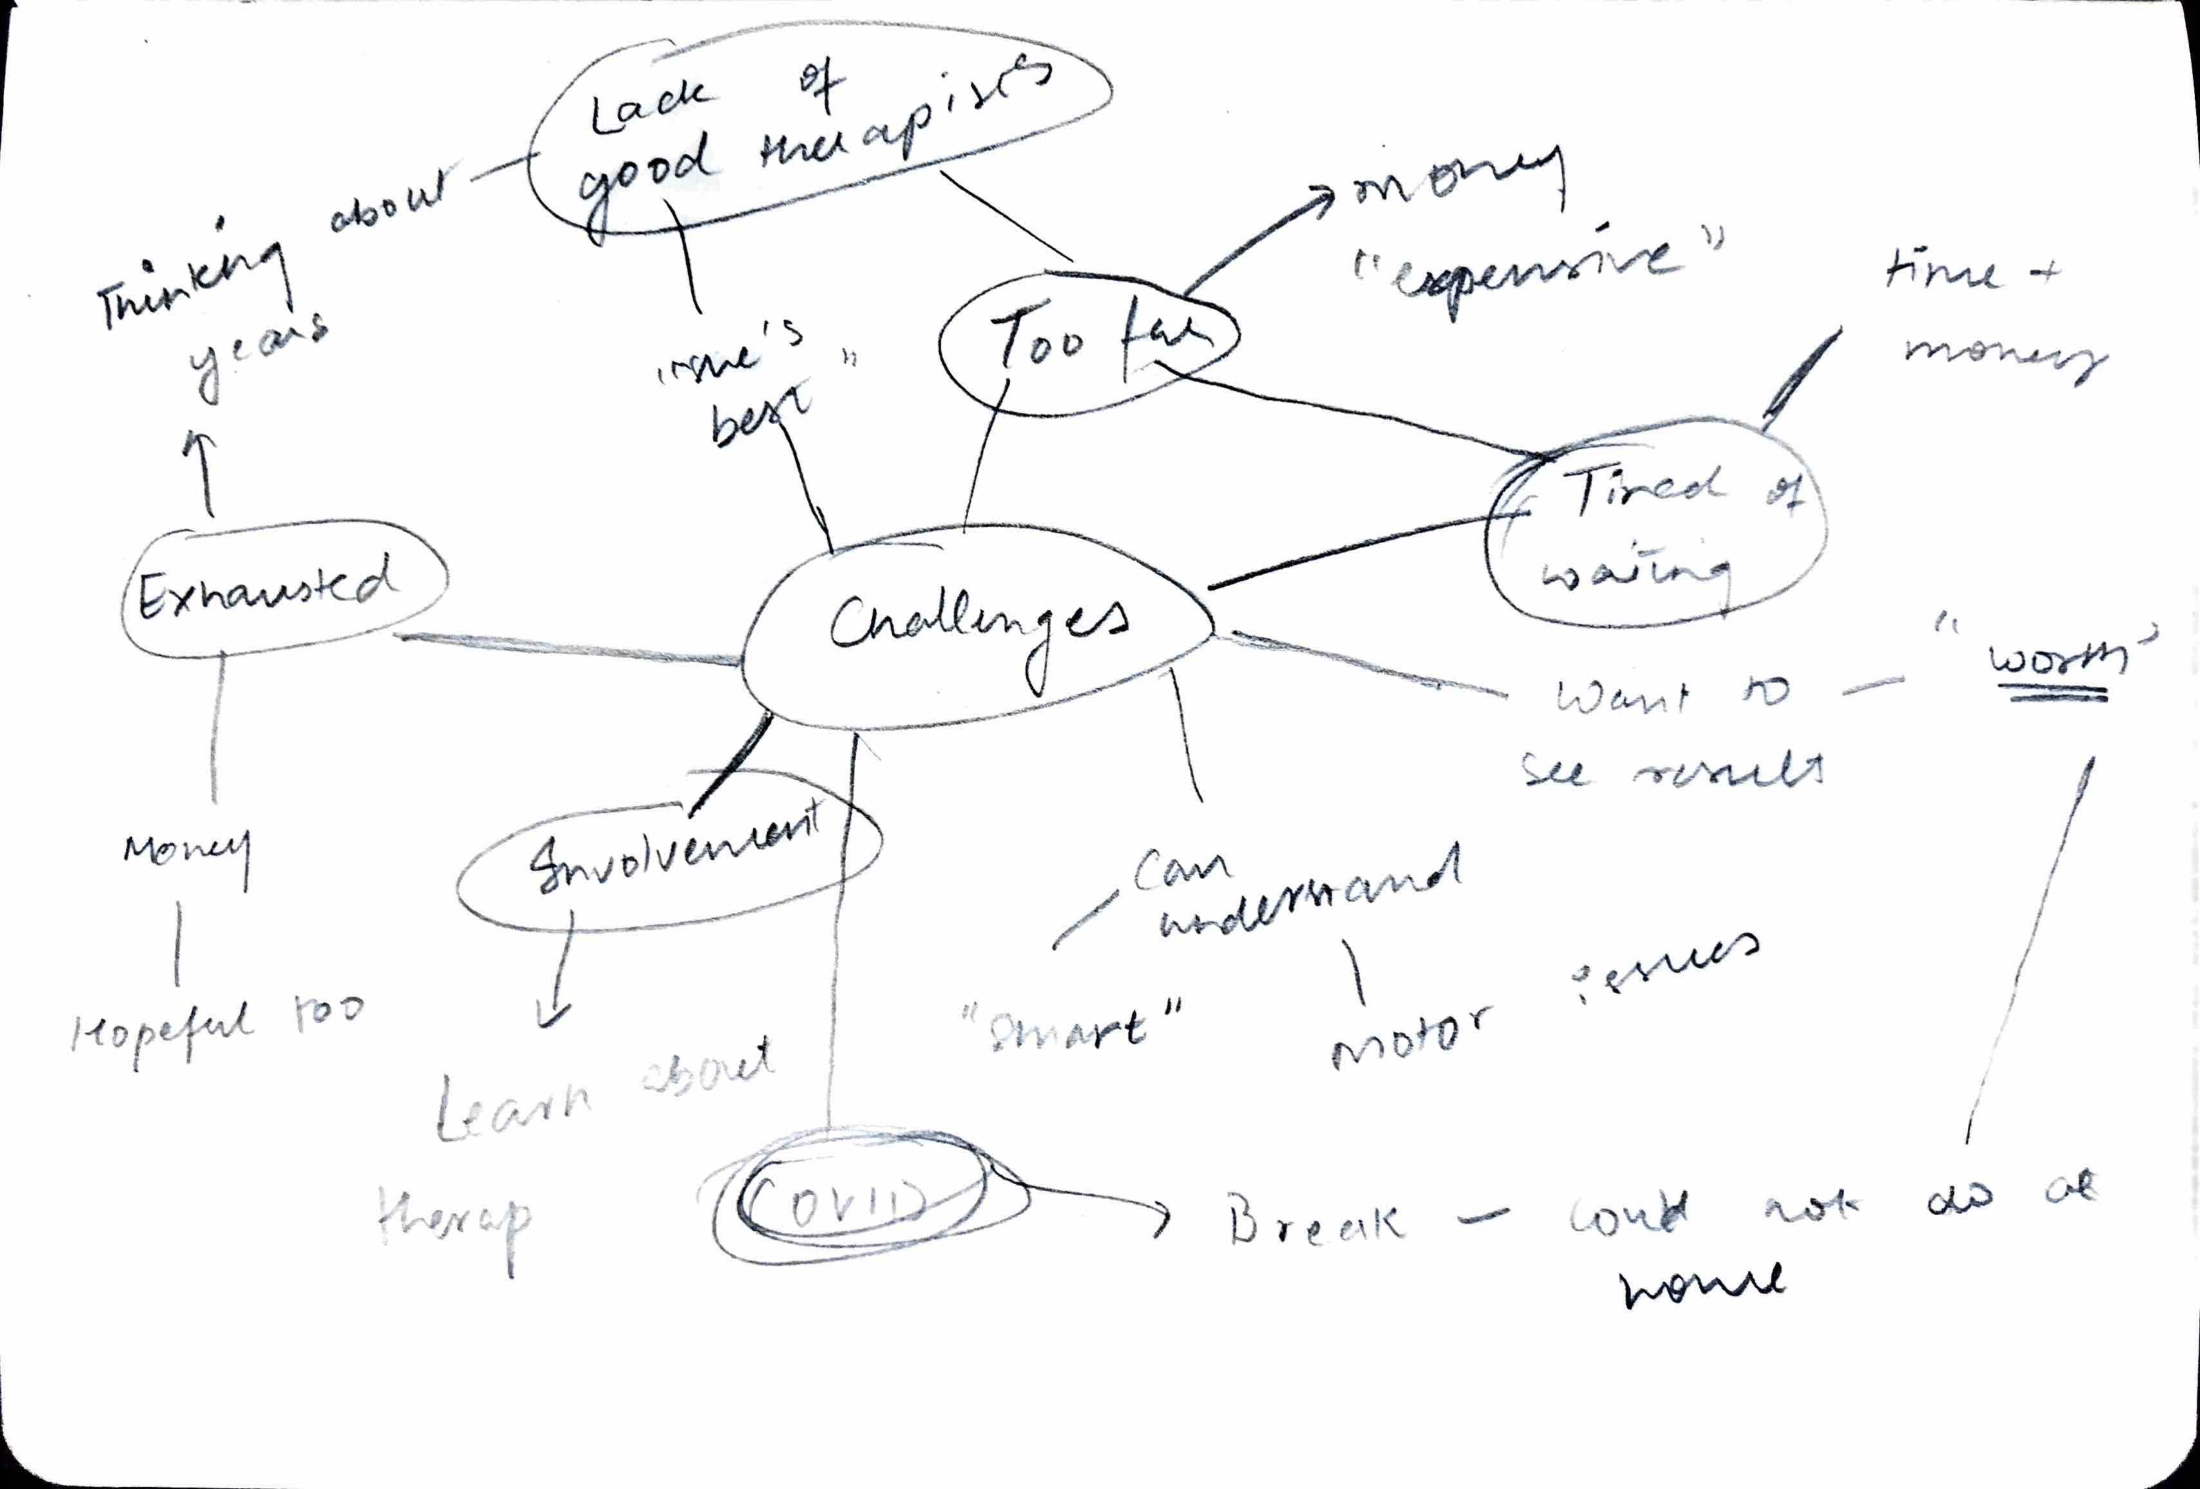 Lack of
good therapists
Thinking about
years
money
"expensive"
time +
money
Too far
"she's
best"
Tired of
waiting
Exhausted
Challenges
"worth"
Want to
see result
Involvement
Money
Can
understand
"smart"
motor issues
Hopeful too
Learn about
therap
COVID
Break - could not do at
home